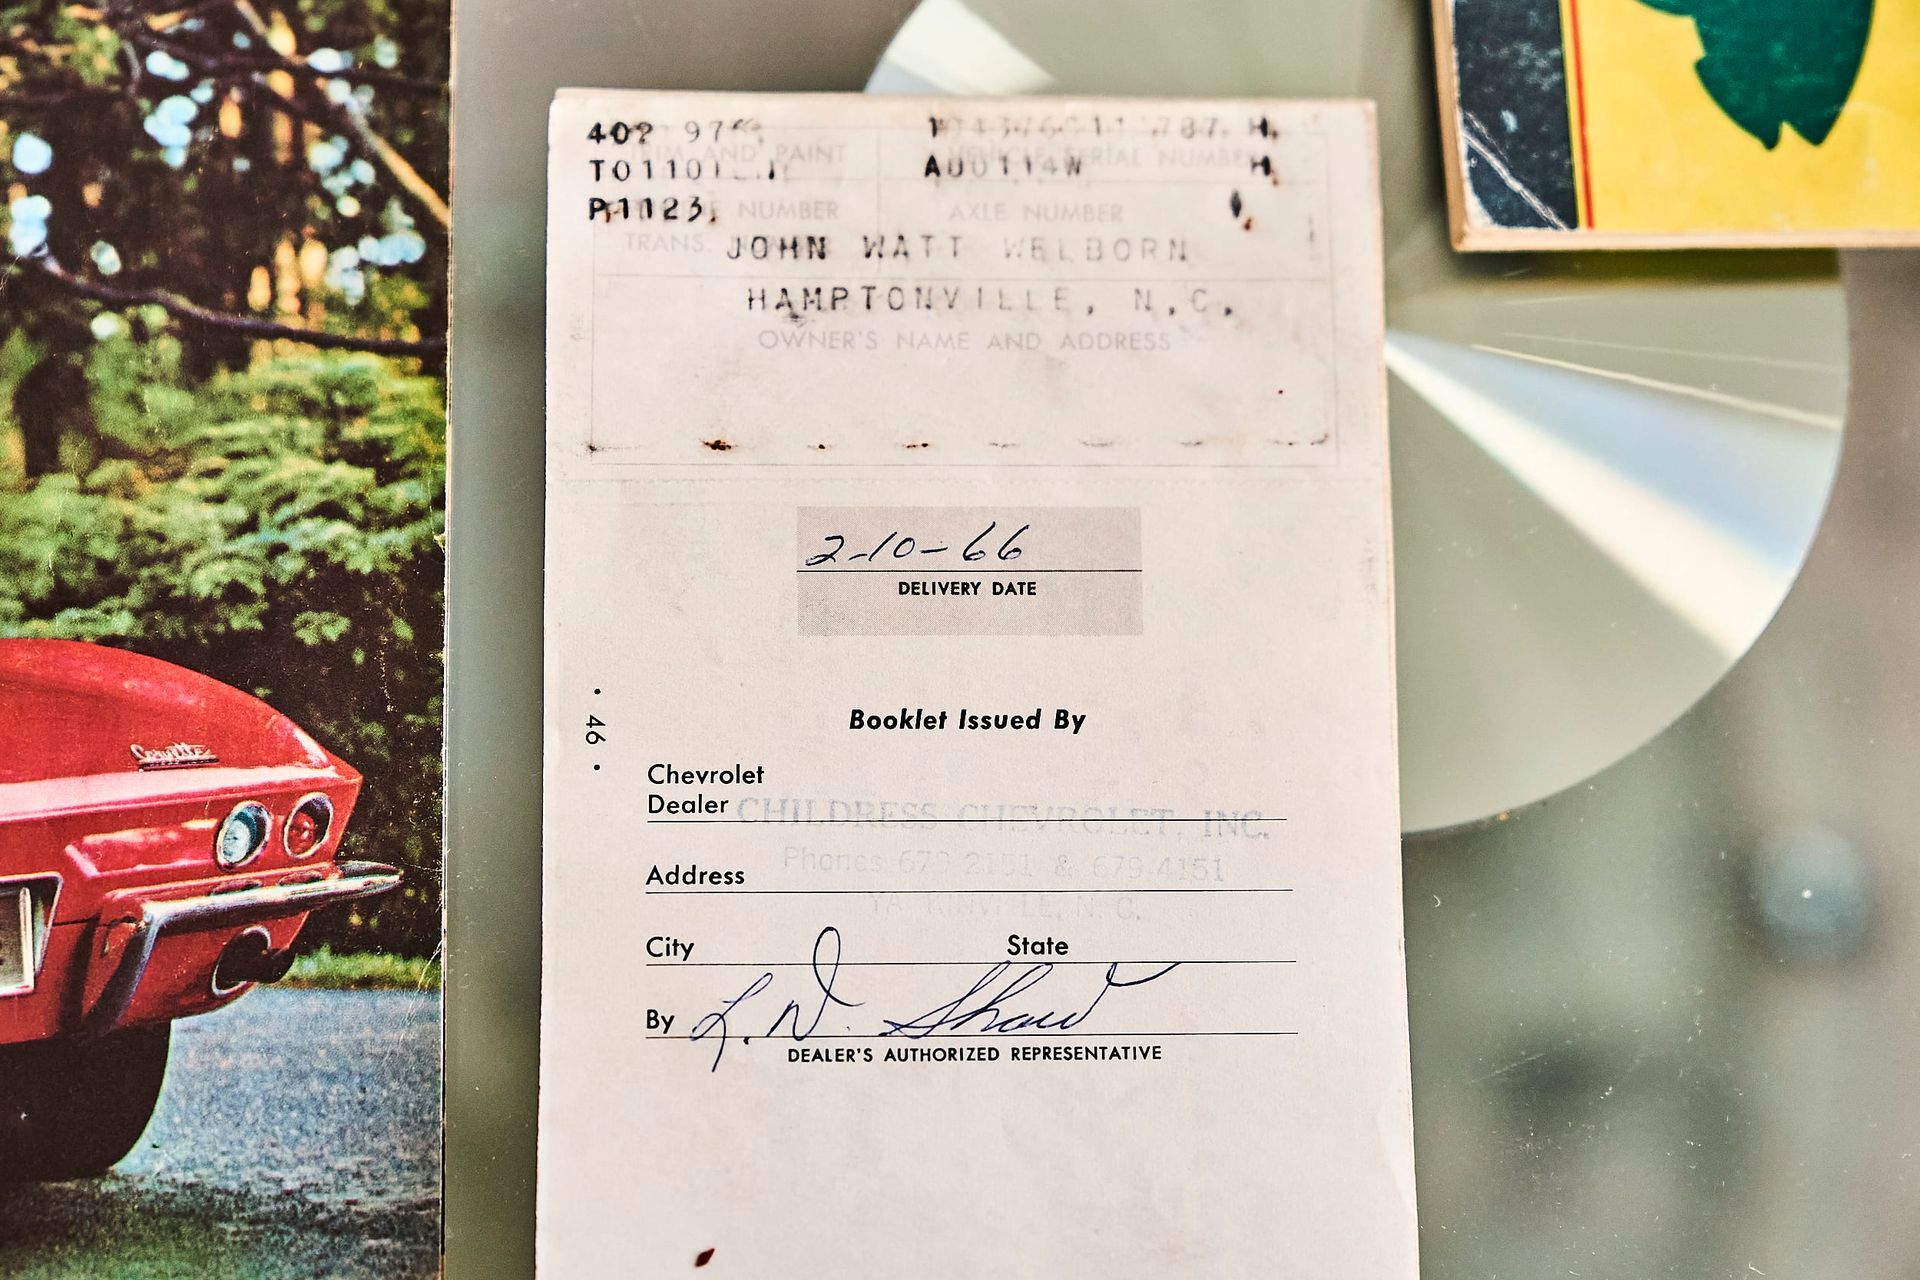 TRIM AND PAINT
VEHICLE SERIAL NUMBER
AU0114W H
P1123
NUMBER
AXLE NUMBER
TRANS.
JOHN WATT WELBORN
HAMPTONVILLE, N.C.
OWNER'S NAME AND ADDRESS
2-10-66
DELIVERY DATE
• 46 •
Booklet Issued By
Corvette
Chevrolet
Dealer CHILDRESS CHEVROLET, INC.
Phones 679-2151 & 679-4151
Address
N. C.
City State
By L. D. Shaw
DEALER'S AUTHORIZED REPRESENTATIVE